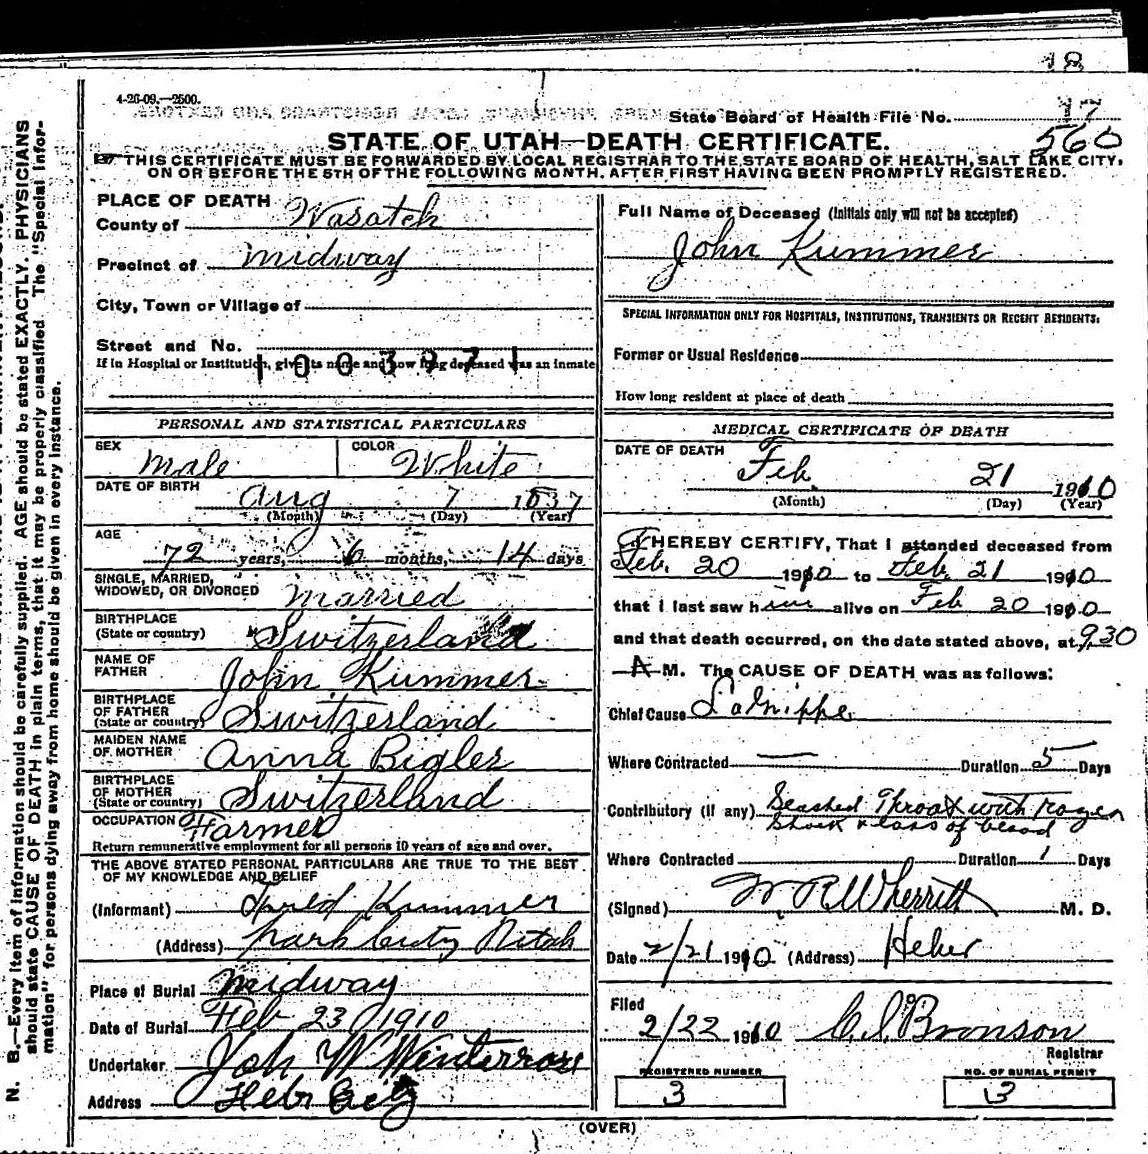 18
4-26-09.—2500.
State Board of Health File No. 17
560
STATE OF UTAH—DEATH CERTIFICATE.
THIS CERTIFICATE MUST BE FORWARDED BY LOCAL REGISTRAR TO THE STATE BOARD OF HEALTH, SALT LAKE CITY,
ON OR BEFORE THE 5TH OF THE FOLLOWING MONTH, AFTER FIRST HAVING BEEN PROMPTLY REGISTERED.
PLACE OF DEATH
County of Wasatch
Precinct of Midway
City, Town or Village of
Street and No.
1003971
If in Hospital or Institution, give its name and how long deceased was an inmate
PERSONAL AND STATISTICAL PARTICULARS
SEX Male COLOR White
DATE OF BIRTH Aug 7 1837
(Month) (Day) (Year)
AGE 72 years, 6 months, 14 days
SINGLE, MARRIED,
WIDOWED, OR DIVORCED Married
BIRTHPLACE
(State or country) Switzerland
NAME OF
FATHER John Kummer
BIRTHPLACE
OF FATHER
(State or country) Switzerland
MAIDEN NAME
OF MOTHER Anna Bigler
BIRTHPLACE
OF MOTHER
(State or country) Switzerland
OCCUPATION Farmer
Return remunerative employment for all persons 10 years of age and over.
THE ABOVE STATED PERSONAL PARTICULARS ARE TRUE TO THE BEST
OF MY KNOWLEDGE AND BELIEF
(Informant) Fred Kummer
(Address) Park City Utah
Place of Burial Midway
Date of Burial Feb 23 1910
Undertaker Joh W Winterrose
Address Hebr City
Full Name of Deceased (Initials only will not be accepted)
John Kummer
SPECIAL INFORMATION ONLY FOR HOSPITALS, INSTITUTIONS, TRANSIENTS OR RECENT RESIDENTS:
Former or Usual Residence
How long resident at place of death
MEDICAL CERTIFICATE OF DEATH
DATE OF DEATH Feb. 21 1910
(Month) (Day) (Year)
I HEREBY CERTIFY, That I attended deceased from
Feb. 20 1910 to Feb. 21 1910
that I last saw him alive on Feb 20 1910
and that death occurred, on the date stated above, at 9.30
A M. The CAUSE OF DEATH was as follows:
Chief Cause LaGrippe
Where Contracted — Duration 5 Days
Contributory (if any) Slashed Throat with razor
shock & loss of blood
Where Contracted Duration 1 Days
(Signed) W R Wherritt M. D.
Date 2/21 1910 (Address) Heber
Filed
2/22 1910 C. S. Bronson
Registrar
REGISTERED NUMBER NO. OF BURIAL PERMIT
3 3
(OVER)
N. B.—Every item of information should be carefully supplied. AGE should be stated EXACTLY. PHYSICIANS
should state CAUSE OF DEATH in plain terms, that it may be properly classified. The "Special Infor-
mation" for persons dying away from home should be given in every instance.